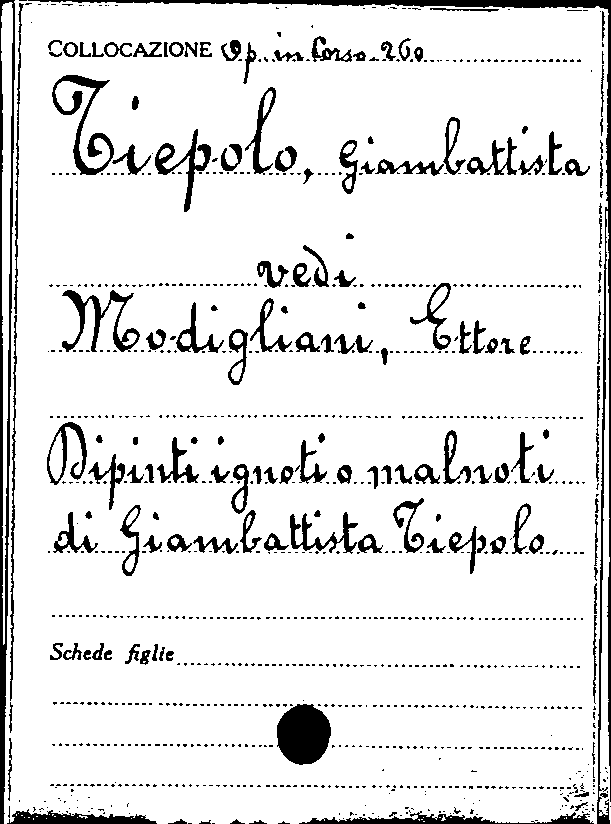 COLLOCAZIONE Op. in Corso 260
Tiepolo, Giambattista
vedi
Modigliani, Ettore
Dipinti ignoti o malnoti
di Giambattista Tiepolo.
Schede figlie